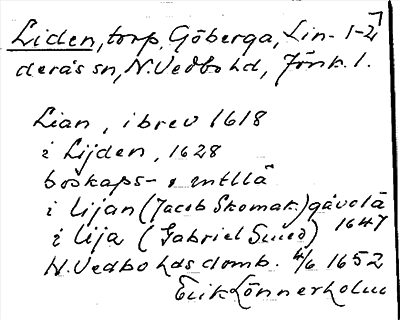 Liden, torp, Göberga, Lin- 1-2
derås sn, N. Vedbo hd, Jönk. l.
Lian, i brev 1618
i Lijden, 1628
boskaps- o mtllä
i Lijan (Jacob Skomak.) gåvolä
1647
i Lija (Gabriel Smed)
N. Vedbo hds domb. 4/6 1652
Erik Lönnerholm